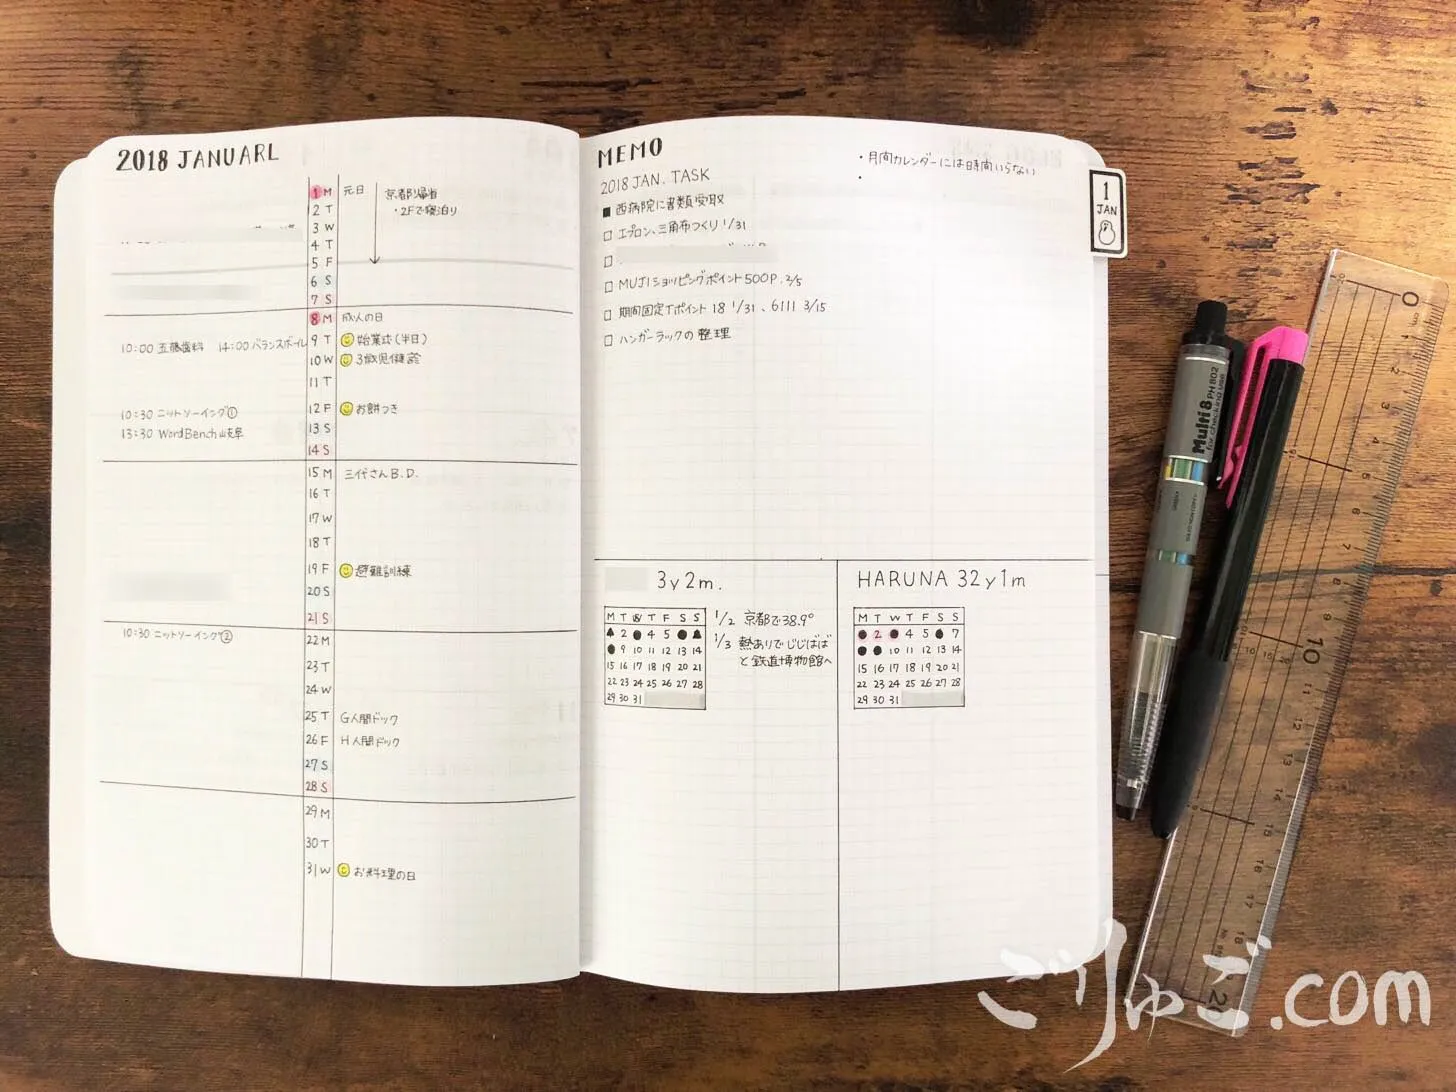 2018 JANUARL
1 M 元日 京都帰省
2 T ・2Fで寝泊り
3 W
4 T
5 F
6 S
7 S
8 M 成人の日
10:00 五藤歯科 14:00 バランスボール 9 T 始業式(半日)
10 W 3歳児健診
11 T
10:30 ニットソーイング① 12 F お餅つき
13:30 WordBench岐阜 13 S
14 S
15 M 三代さん B.D.
16 T
17 W
18 T
19 F 避難訓練
20 S
21 S
10:30 ニットソーイング② 22 M
23 T
24 W
25 T G人間ドック
26 F H人間ドック
27 S
28 S
29 M
30 T
31 W お料理の日
MEMO
2018 JAN. TASK
西病院に書類受取
エプロン、三角布つくり 1/31
MUJIショッピングポイント 500P. 2/5
期間固定Tポイント 18 1/31、6111 3/15
ハンガーラックの整理
・月間カレンダーには時間いらない
・
1
JAN
3y2m.
M T W T F S S
2 4 5
9 10 11 12 13 14
15 16 17 18 19 20 21
22 23 24 25 26 27 28
29 30 31
1/2 京都で38.9°
1/3 熱ありでじじばば
と鉄道博物館へ
HARUNA 32y1m
M T W T F S S
2 4 5 7
10 11 12 13 14
15 16 17 18 19 20 21
22 23 24 25 26 27 28
29 30 31
Multi 8 PH802
for checking use
0
10
20
ごりゅご.com